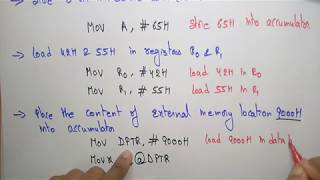 Mov A, #65H Store 65H into accumulator
→ Load 42H & 55H in registers R0 & R1
Mov R0, #42H Load 42H in R0
Mov R1, #55H Load 55H in R1
→ Place the content of External memory location 9000H
into accumulator
Mov DPTR, #9000H Load 9000H in data
Movx @DPTR